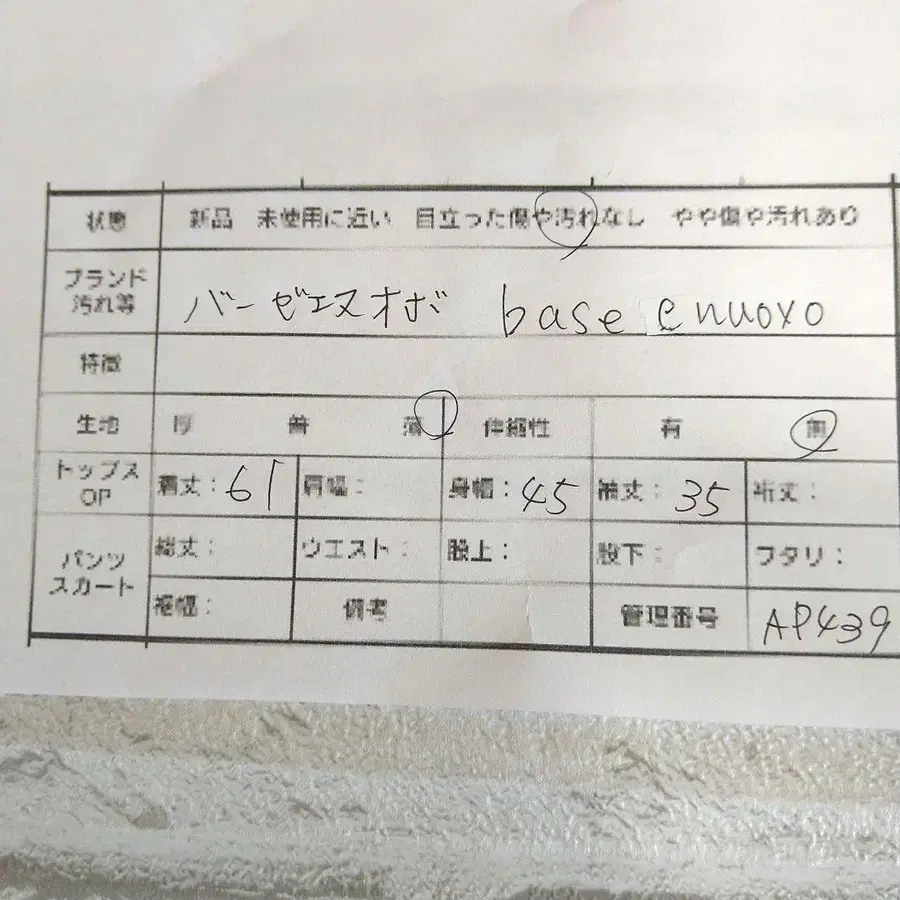 状態 新品 未使用に近い 目立った傷や汚れなし やや傷や汚れあり
ブランド
汚れ等 バーゼエヌオボ base enuovo
特徴
生地 厚 普 薄 伸縮性 有 無
トップス
OP 着丈：61 肩幅： 身幅：45 袖丈：35 裄丈：
パンツ
スカート 総丈： ウエスト： 股上： 股下： ワタリ：
裾幅： 備考 管理番号 AP439